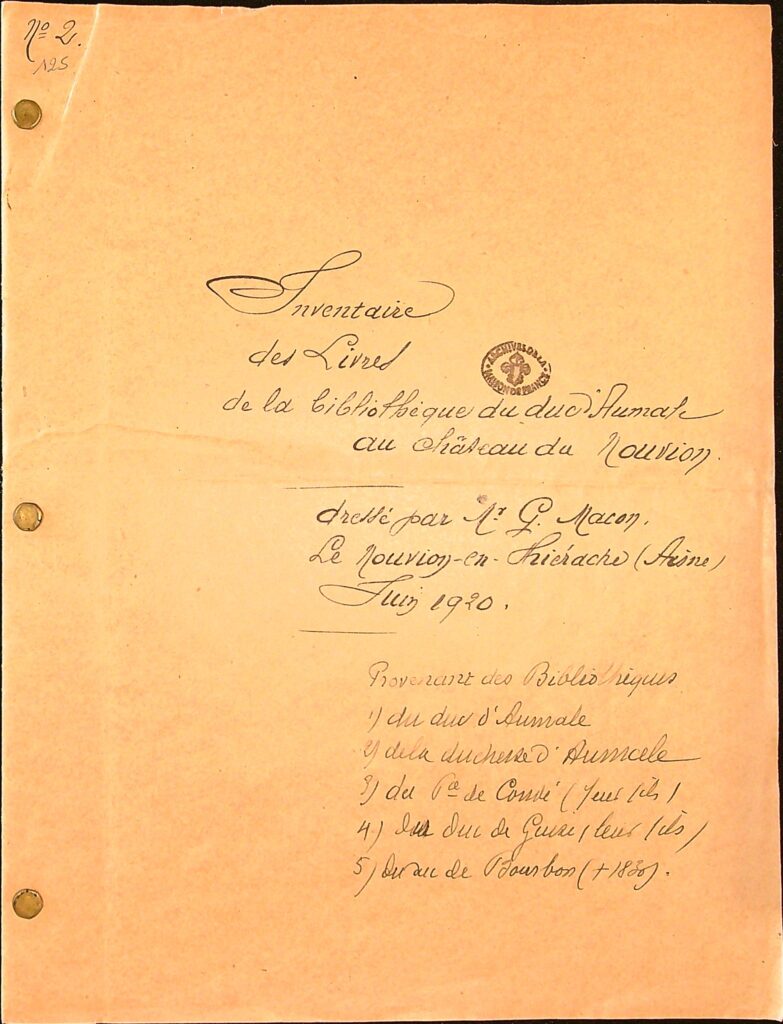 Nº 2.
125
Inventaire
des Livres
ARCHIVES DE LA
MAISON DE FRANCE
de la bibliothèque du duc d'Aumale
au château du Nouvion.
dressé par Mr G. Macon.
Le Nouvion-en-Thiérache (Aisne)
Juin 1920.
Provenant des Bibliothèques
1) du duc d'Aumale
2) de la duchesse d'Aumale
3) du Pce de Condé (leur fils)
4) du Duc de Guise (leur fils)
5) du duc de Bourbon (+ 1830).